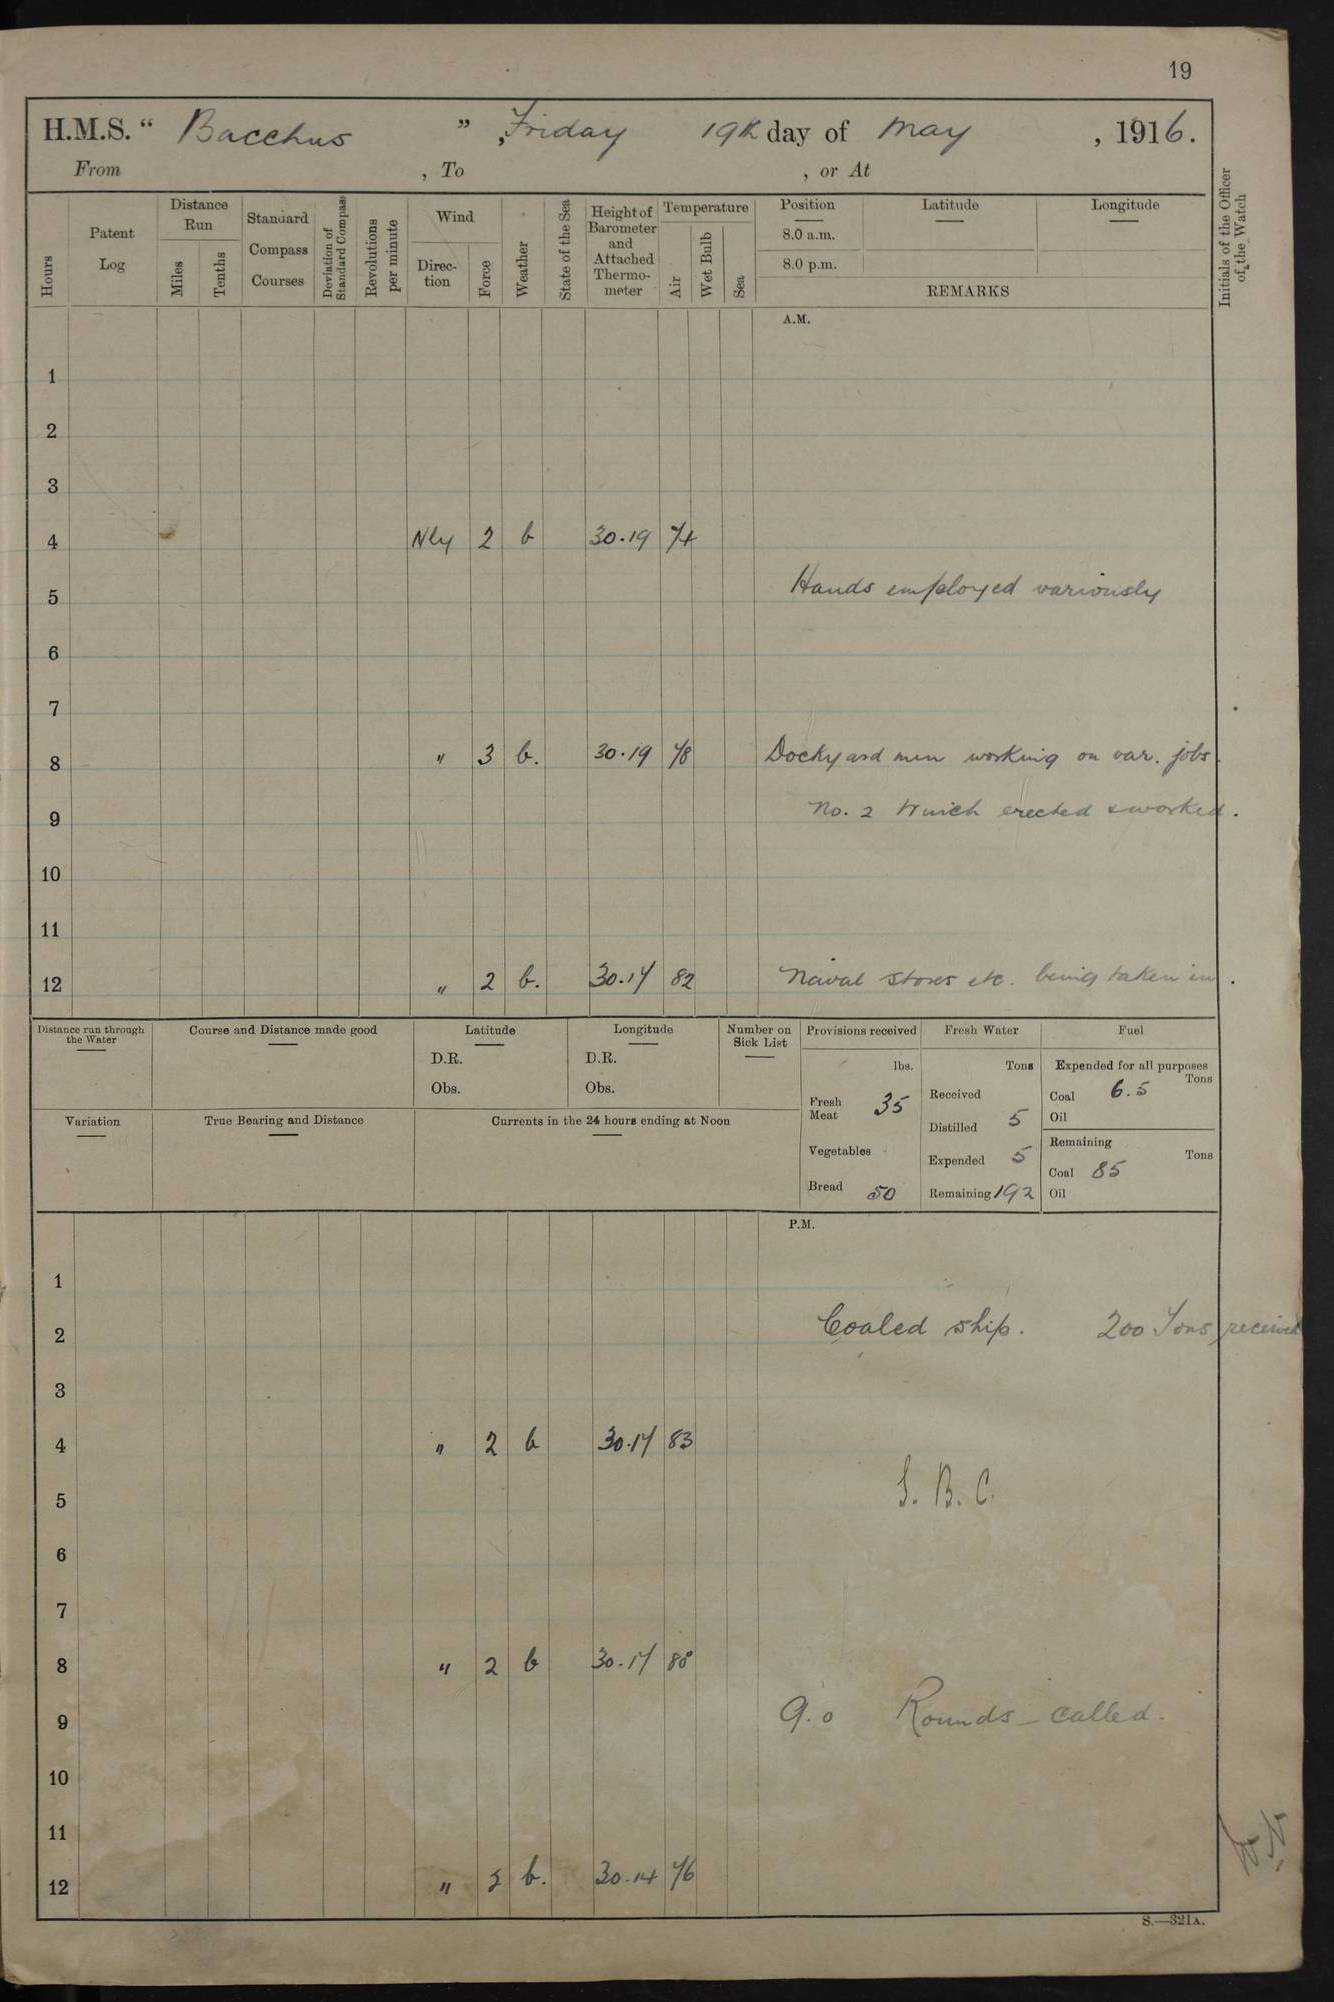 19
H.M.S. “ Bacchus ” , Friday 19th day of May , 1916.
From , To , or At
Hours
Patent Log
Distance Run
Miles
Tenths
Standard Compass Courses
Deviation of Standard Compass
Revolutions per minute
Wind
Direc- tion
Force
Weather
State of the Sea
Height of Barometer and Attached Thermo- meter
Temperature
Air
Wet Bulb
Sea
Position
8.0 a.m.
8.0 p.m.
Latitude
Longitude
REMARKS
Initials of the Officer of the Watch
A.M.
1
2
3
4 Nly 2 b 30.19 74
Hands employed variously
5
6
7
8 " 3 b. 30.19 78 Dockyard men working on var. jobs.
No. 2 Winch erected & worked.
9
10
11
12 " 2 b. 30.17 82 Naval stores etc. being taken in.
Distance run through the Water
Course and Distance made good
Latitude
D.R.
Obs.
Longitude
D.R.
Obs.
Number on Sick List
Provisions received
lbs.
Fresh Meat 35
Vegetables
Bread 50
Fresh Water
Tons
Received
Distilled 5
Expended 5
Remaining 192
Fuel
Expended for all purposes
Tons
Coal 6.5
Oil
Remaining
Tons
Coal 85
Oil
Variation
True Bearing and Distance
Currents in the 24 hours ending at Noon
P.M.
1
2 Coaled ship. 200 Tons received
3
4 " 2 b 30.17 83
S. B. C.
5
6
7
8 " 2 b 30.17 80
9 9.0 Rounds – called.
10
11
12 " b. 30.14 76
S.—321A.